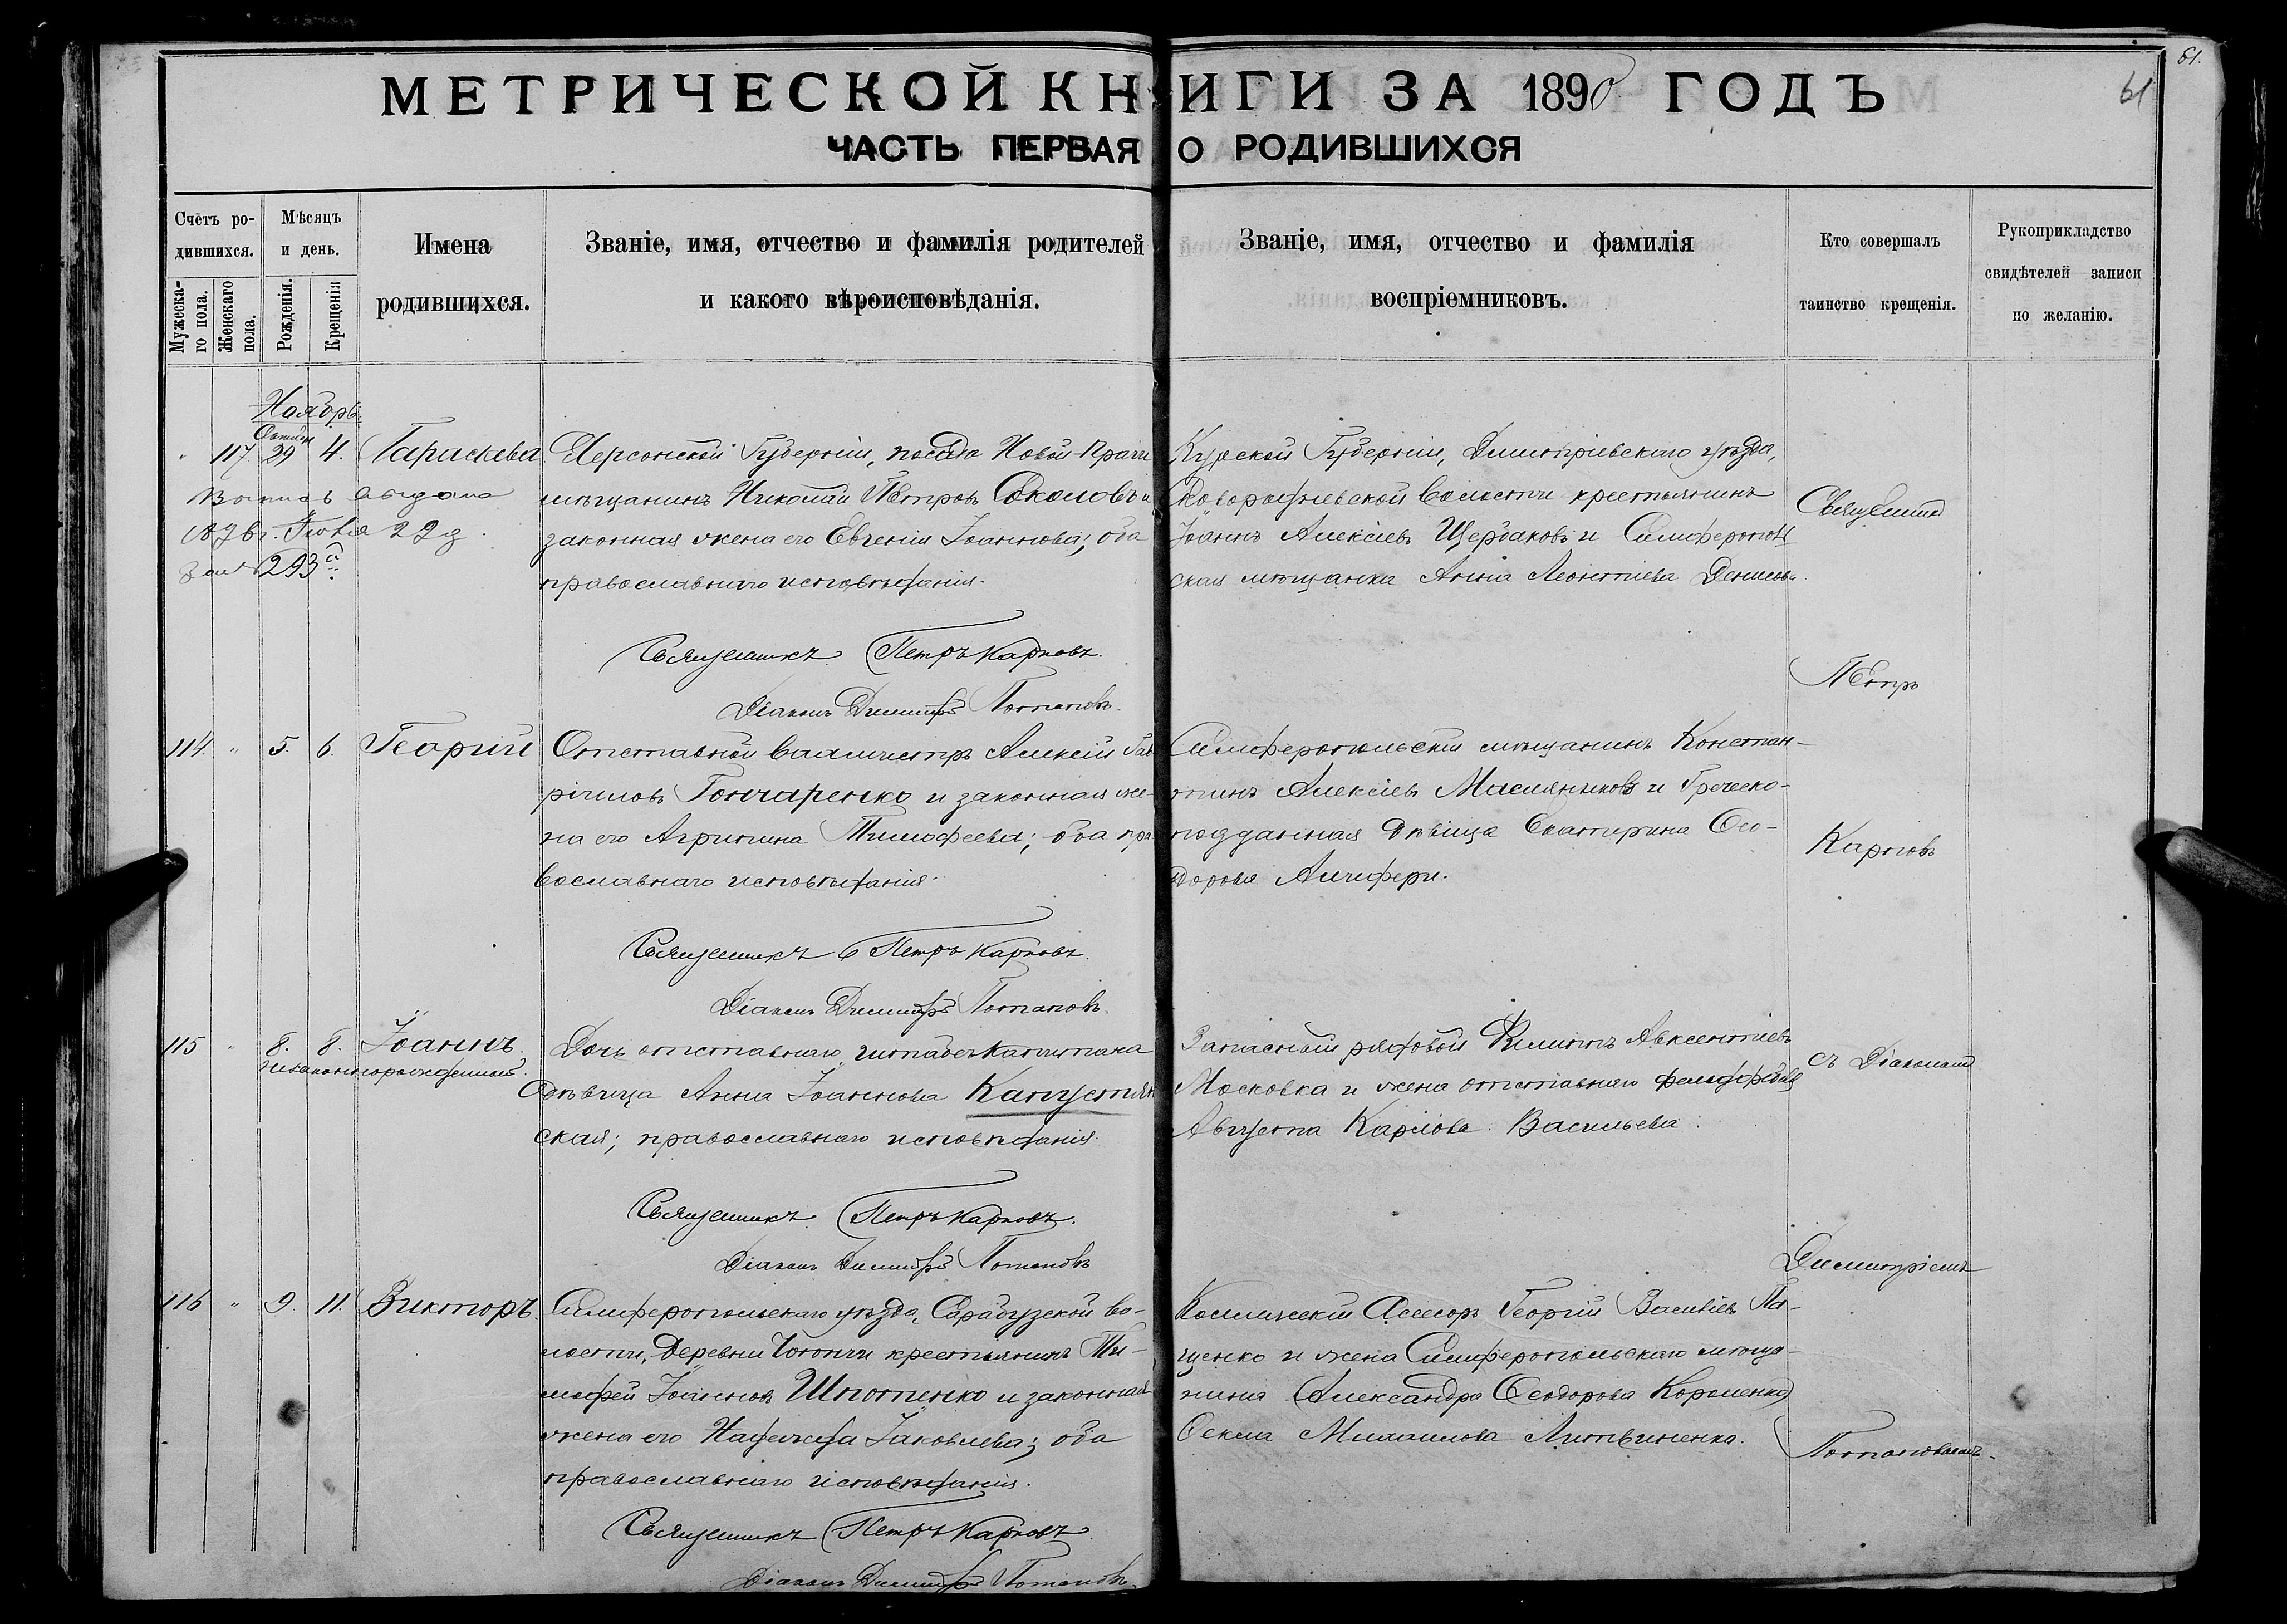 61.
61
МЕТРИЧЕСКОЙ КНИГИ ЗА 1890 ГОДЪ
ЧАСТЬ ПЕРВАЯ О РОДИВШИХСЯ
Счетъ ро-
дившихся.
Мужеска-
го пола.
Женскаго
пола.
Мѣсяцъ
и день.
Рожденія.
Крещенія
Имена
родившихся.
Званіе, имя, отчество и фамилія родителей
и какого вѣроисповѣданія.
Званіе, имя, отчество и фамилія
воспріемниковъ.
Кто совершалъ
таинство крещенія.
Рукоприкладство
свидѣтелей записи
по желанію.
Ноябрь
117 29 4. Параскева
189 г. Іюня 22 д.
293
Херсонской Губерніи, посада Новой-Праги
мѣщанинъ Николай Петровъ Соколовъ и
законная жена его Евгенія Іоаннова; оба
православнаго исповѣданія.
Курской Губерніи, Димитріевскаго уѣзда,
волости крестьянинъ
Іоаннъ Алексіевъ Щербаковъ и Симферополь
ская мѣщанка Анна Леонтіева Денисова.
Священникъ Петръ Карповъ.
Діаконъ Димитрій Потаповъ.
114. " 5. 6. Георгій
Отставной вахмистръ Алексій Гав
ріиловъ Гончаренко и законная же-
на его Агрипина Тимофеева; оба пра
вославнаго исповѣданія.
Симферопольскій мѣщанинъ Констан-
тинъ Алексіевъ Масляниковъ и Греческо-
подданная дѣвица Екатерина Ѳео-
дорова
Священникъ Петръ Карповъ.
Діаконъ Димитрій Потаповъ.
115 " 8. 8. Іоаннъ
незаконнорожденный.
Дочь отставнаго штабсъ-капитана
дѣвица Анна Іоаннова Капустян
ская; православнаго исповѣданія.
Запасный рядовой Филиппъ Авксентіевъ
Московка и жена отставнаго фельдфебеля
Августа Карлова Васильева.
Священникъ Петръ Карповъ.
Діаконъ Димитрій Потаповъ
116 " 9. 11. Викторъ.
Симферопольскаго уѣзда, Сарабузской во-
лости, деревни крестьянинъ Ти-
мофей Іоанновъ Шпотенко и законная
жена его Надежда Іаковлева; оба
православнаго исповѣданія.
Коллежскій Асесоръ Георгій Василіевъ Па-
щенко и жена Симферопольскаго мѣща-
нина (Александра Ѳеодорова Короленко)
Ѳекла Михаилова Литвиненко.
Священникъ Петръ Карповъ.
Діаконъ Димитрій Потаповъ.
Священникъ
Петръ
Карповъ
съ Діакономъ
Димитріемъ
Потаповымъ.